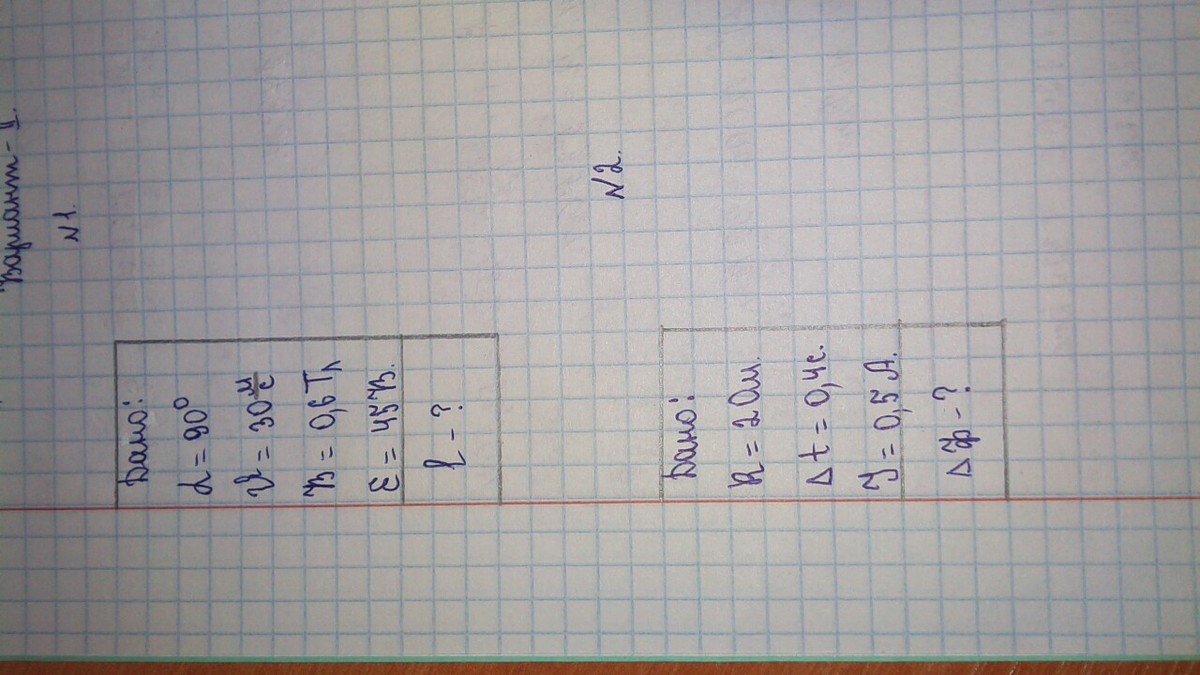 Вариант - II.
№1.
Дано:
α = 90°
υ = 30 м/с
B = 0,6 Тл
ε = 45 В.
l - ?
№2.
Дано:
R = 2 Ом.
Δt = 0,4 с.
I = 0,5 А.
ΔФ - ?